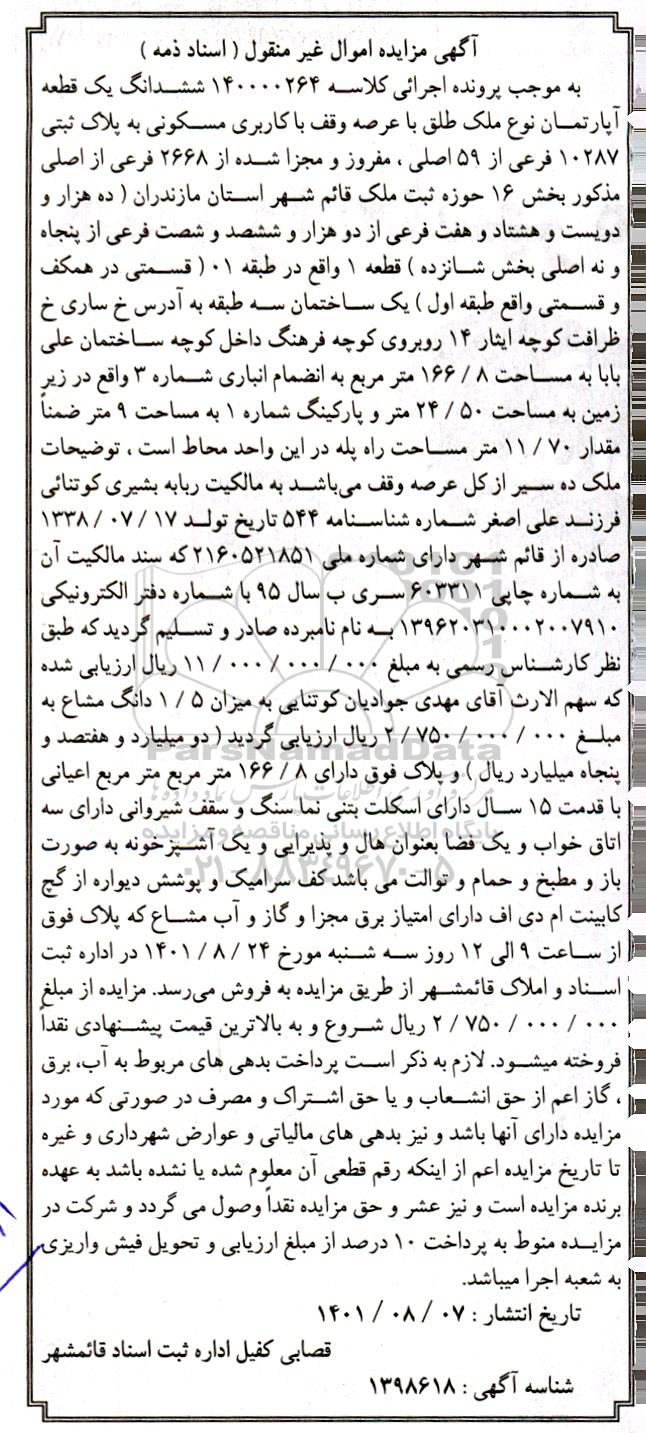 آگهی مزایده اموال غیر منقول ( اسناد ذمه )
به موجب پرونده اجرائی کلاسه ۱۴۰۰۰۰۲۶۴ ششدانگ یک قطعه
آپارتمان نوع ملک طلق با عرصه وقف با کاربری مسکونی به پلاک ثبتی
۱۰۲۸۷ فرعی از ۵۹ اصلی ، مفروز و مجزا شده از ۲۶۶۸ فرعی از اصلی
مذکور بخش ۱۶ حوزه ثبت ملک قائم شهر استان مازندران ( ده هزار و
دویست و هشتاد و هفت فرعی از دو هزار و ششصد و شصت فرعی از پنجاه
و نه اصلی بخش شانزده ) قطعه ۱ واقع در طبقه ۰۱ ( قسمتی در همکف
و قسمتی واقع طبقه اول ) یک ساختمان سه طبقه به آدرس خ ساری خ
ظرافت کوچه ایثار ۱۴ روبروی کوچه فرهنگ داخل کوچه ساختمان علی
بابا به مساحت ۸ / ۱۶۶ متر مربع به انضمام انباری شماره ۳ واقع در زیر
زمین به مساحت ۵۰ / ۲۴ متر و پارکینگ شماره ۱ به مساحت ۹ متر ضمناً
مقدار ۷۰ / ۱۱ متر مساحت راه پله در این واحد محاط است ، توضیحات
ملک ده سیر از کل عرصه وقف می‌باشد به مالکیت ربابه بشیری کوتنائی
فرزند علی اصغر شماره شناسنامه ۵۴۴ تاریخ تولد ۱۷ / ۰۷ / ۱۳۳۸
صادره از قائم شهر دارای شماره ملی ۲۱۶۰۵۲۱۸۵۱ که سند مالکیت آن
به شماره چاپی ۶۰۳۳۱۱ سری ب سال ۹۵ با شماره دفتر الکترونیکی
۱۳۹۶۲۰۳۱۰۰۰۲۰۰۷۹۱۰ به نام نامبرده صادر و تسلیم گردید که طبق
نظر کارشناس رسمی به مبلغ ۰۰۰ / ۰۰۰ / ۰۰۰ / ۱۱ ریال ارزیابی شده
که سهم الارث آقای مهدی جوادیان کوتنایی به میزان ۵ / ۱ دانگ مشاع به
مبلغ ۰۰۰ / ۰۰۰ / ۷۵۰ / ۲ ریال ارزیابی گردید ( دو میلیارد و هفتصد و
پنجاه میلیارد ریال ) و پلاک فوق دارای ۸ / ۱۶۶ متر مربع متر مربع اعیانی
با قدمت ۱۵ سال دارای اسکلت بتنی نما سنگ و سقف شیروانی دارای سه
اتاق خواب و یک فضا بعنوان هال و پذیرایی و یک آشپزخونه به صورت
باز و مطبخ و حمام و توالت می باشد کف سرامیک و پوشش دیواره از گچ
کابینت ام دی اف دارای امتیاز برق مجزا و گاز و آب مشاع که پلاک فوق
از ساعت ۹ الی ۱۲ روز سه شنبه مورخ ۲۴ / ۸ / ۱۴۰۱ در اداره ثبت
اسناد و املاک قائمشهر از طریق مزایده به فروش می‌رسد. مزایده از مبلغ
۰۰۰ / ۰۰۰ / ۷۵۰ / ۲ ریال شروع و به بالاترین قیمت پیشنهادی نقداً
فروخته میشود. لازم به ذکر است پرداخت بدهی های مربوط به آب، برق
، گاز اعم از حق انشعاب و یا حق اشتراک و مصرف در صورتی که مورد
مزایده دارای آنها باشد و نیز بدهی های مالیاتی و عوارض شهرداری و غیره
تا تاریخ مزایده اعم از اینکه رقم قطعی آن معلوم شده یا نشده باشد به عهده
برنده مزایده است و نیز عشر و حق مزایده نقداً وصول می گردد و شرکت در
مزایده منوط به پرداخت ۱۰ درصد از مبلغ ارزیابی و تحویل فیش واریزی
به شعبه اجرا میباشد.
تاریخ انتشار : ۰۷ / ۰۸ / ۱۴۰۱
قصابی کفیل اداره ثبت اسناد قائمشهر
شناسه آگهی : ۱۳۹۸۶۱۸
ParsNamadData
مرکز فرآوری اطلاعات پارس نماد داده ها
پایگاه اطلاع رسانی مناقصه و مزایده
۰۲۱-۸۸۳۴۹۶۷۰-۵